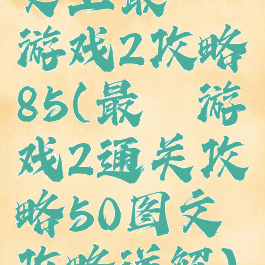 史上最
游戏2攻略
85(最 游
戏2通关攻
略50图文
攻略详解)